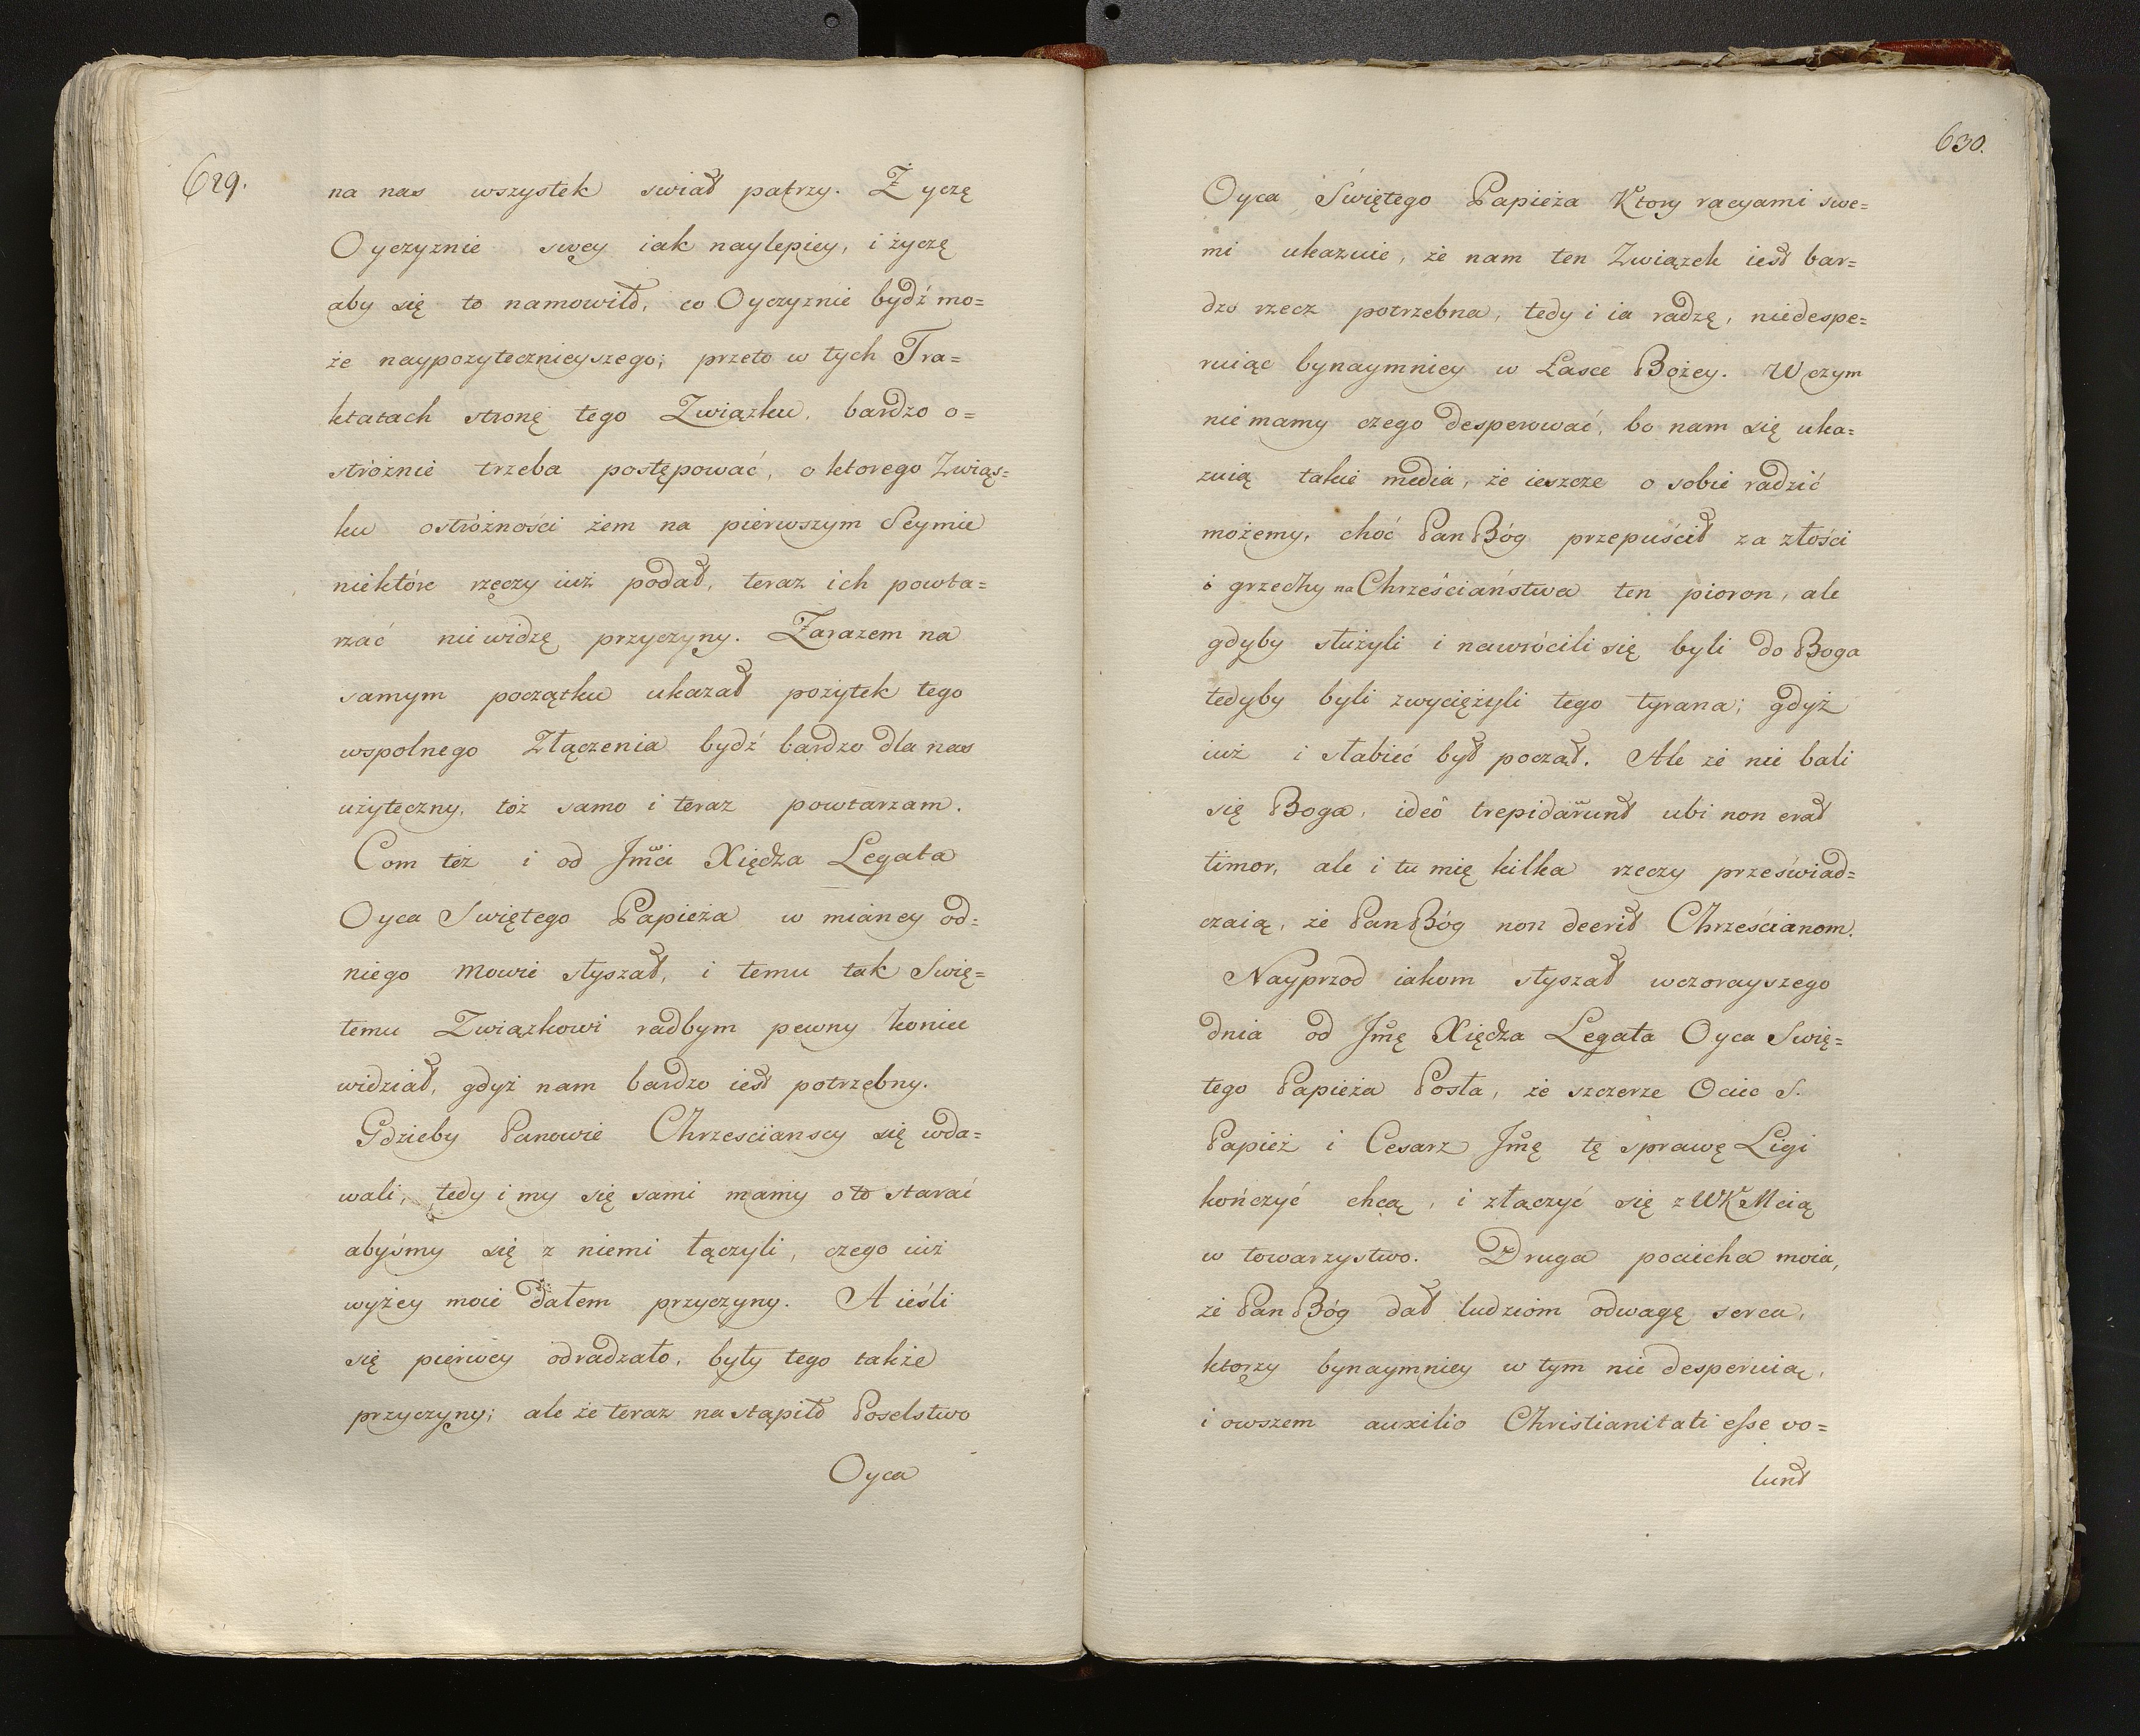 629.
na nas wszystek swiat patrzy. Zyczę
Oyczyznie swey iak naylepiey, i życzę
aby się to namowiło, co Oyczyznie bydź mo=
że naypozytecznieyszego; przeto w tych Tra=
ktatach stronę tego Związku, bardzo o=
stróżnie trzeba postępować, o ktorego Związ=
ku ostróżności żem na pierwszym Seymie
niektóre rzęczy iuż podał, teraz ich powta=
rzać nie widzę przyczyny. Zarazem na
samym początku ukazał pożytek tego
wspolnego Złączenia bydź bardzo dla nas
użyteczny, toż samo i teraz powtarzam.
Com też i od Jmci Xiędza Legata
Oyca Swiętego Papieża w mianey od=
niego mowie słyszał, i temu tak Swię=
temu Związkowi radbym pewny koniec
widział, gdyż nam bardzo iest potrzebny.
Gdzieby Panowie Chrzescianscy się wda=
wali, tędy i my się sami mamy o to starać
abyśmy się z niemi łączyli, czego iuż
wyżey moie dałem przyczyny. A ieśli
się pierwey odradzało, były tego także
przyczyny; ale że teraz nastąpiło Poselstwo
Oyca
630.
Oyca Świętego Papieża Ktory racyami swe=
mi ukazuie, że nam ten Związek iest bar=
dzo rzecz potrzebna, tedy i ia radzę, niedespe=
ruiąc bynaymniey w Łasce Bożey. W czym
nie mamy czego desperować, bo nam się uka=
zuią takie media, że ieszcze o sobie radzić
możemy, choć Pan Bóg przepuścił za złości
i grzechy na Chrześciaństwa ten pioron, ale
gdyby służyli i nawrócili się byli do Boga
tedyby byli zwyciężyli tego tyrana; gdyż
iuż i słabieć był począł. Ale że nie bali
się Boga, ideô trepidarunt ubi non erat
timor, ale i tu mię kilka rzeczy przeświad=
czaią, że Pan Bóg non deerit Chrześcianom.
Nayprzod iakom słyszał wczorayszego
dnia od Jmę Xiędza Legata Oyca Swię=
tego Papieża Posła, że szczerze Ociec S.
Papież i Cesarz Jmę tę sprawę Ligi
kończyć chcą, i złączyć się z WKMcią
w towarzystwo. Druga pociecha moia,
że Pan Bóg dał ludziom odwagę serca,
ktorzy bynaymniey w tym nie desperuią,
i owszem auxilio Christianitati esse vo=
lunt